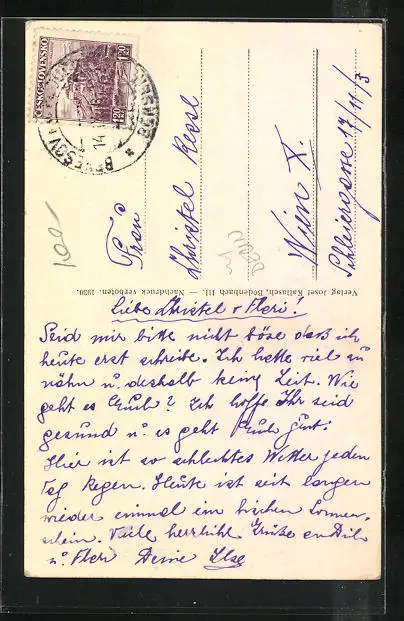 ČESKOSLOVENSKO
1.20 1.20
BENEŠOV
100
Frau
Christel
Wien X.
Schleiergasse 17/11/3
Verlag Josef Kallasch, Bodenbach III. — Nachdruck verboten. 1930.
Liebe Christel + Fleri!
Seid mir bitte nicht böse daß ich
heute erst schreibe. Ich hatte viel zu
nähn u. deshalb keine Zeit. Wie
geht es Euch? Ich hoffe Ihr seid
gesund u. es geht Euch gut.
Hier ist so schlechtes Wetter jeden
Tag Regen. Heute ist seit langen
wieder einmal ein bischen Sonnen-
schein. Viele herzliche Grüße an Dich
u. Fleri Deine Ilse